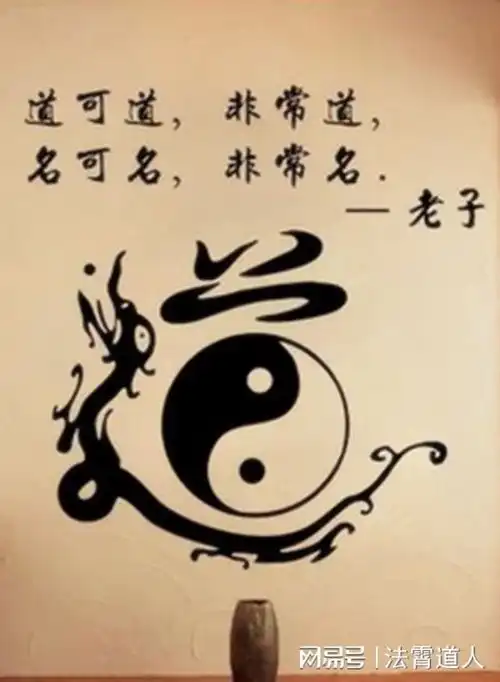 道可道，非常道，
名可名，非常名．
— 老子
网易号 | 法霄道人